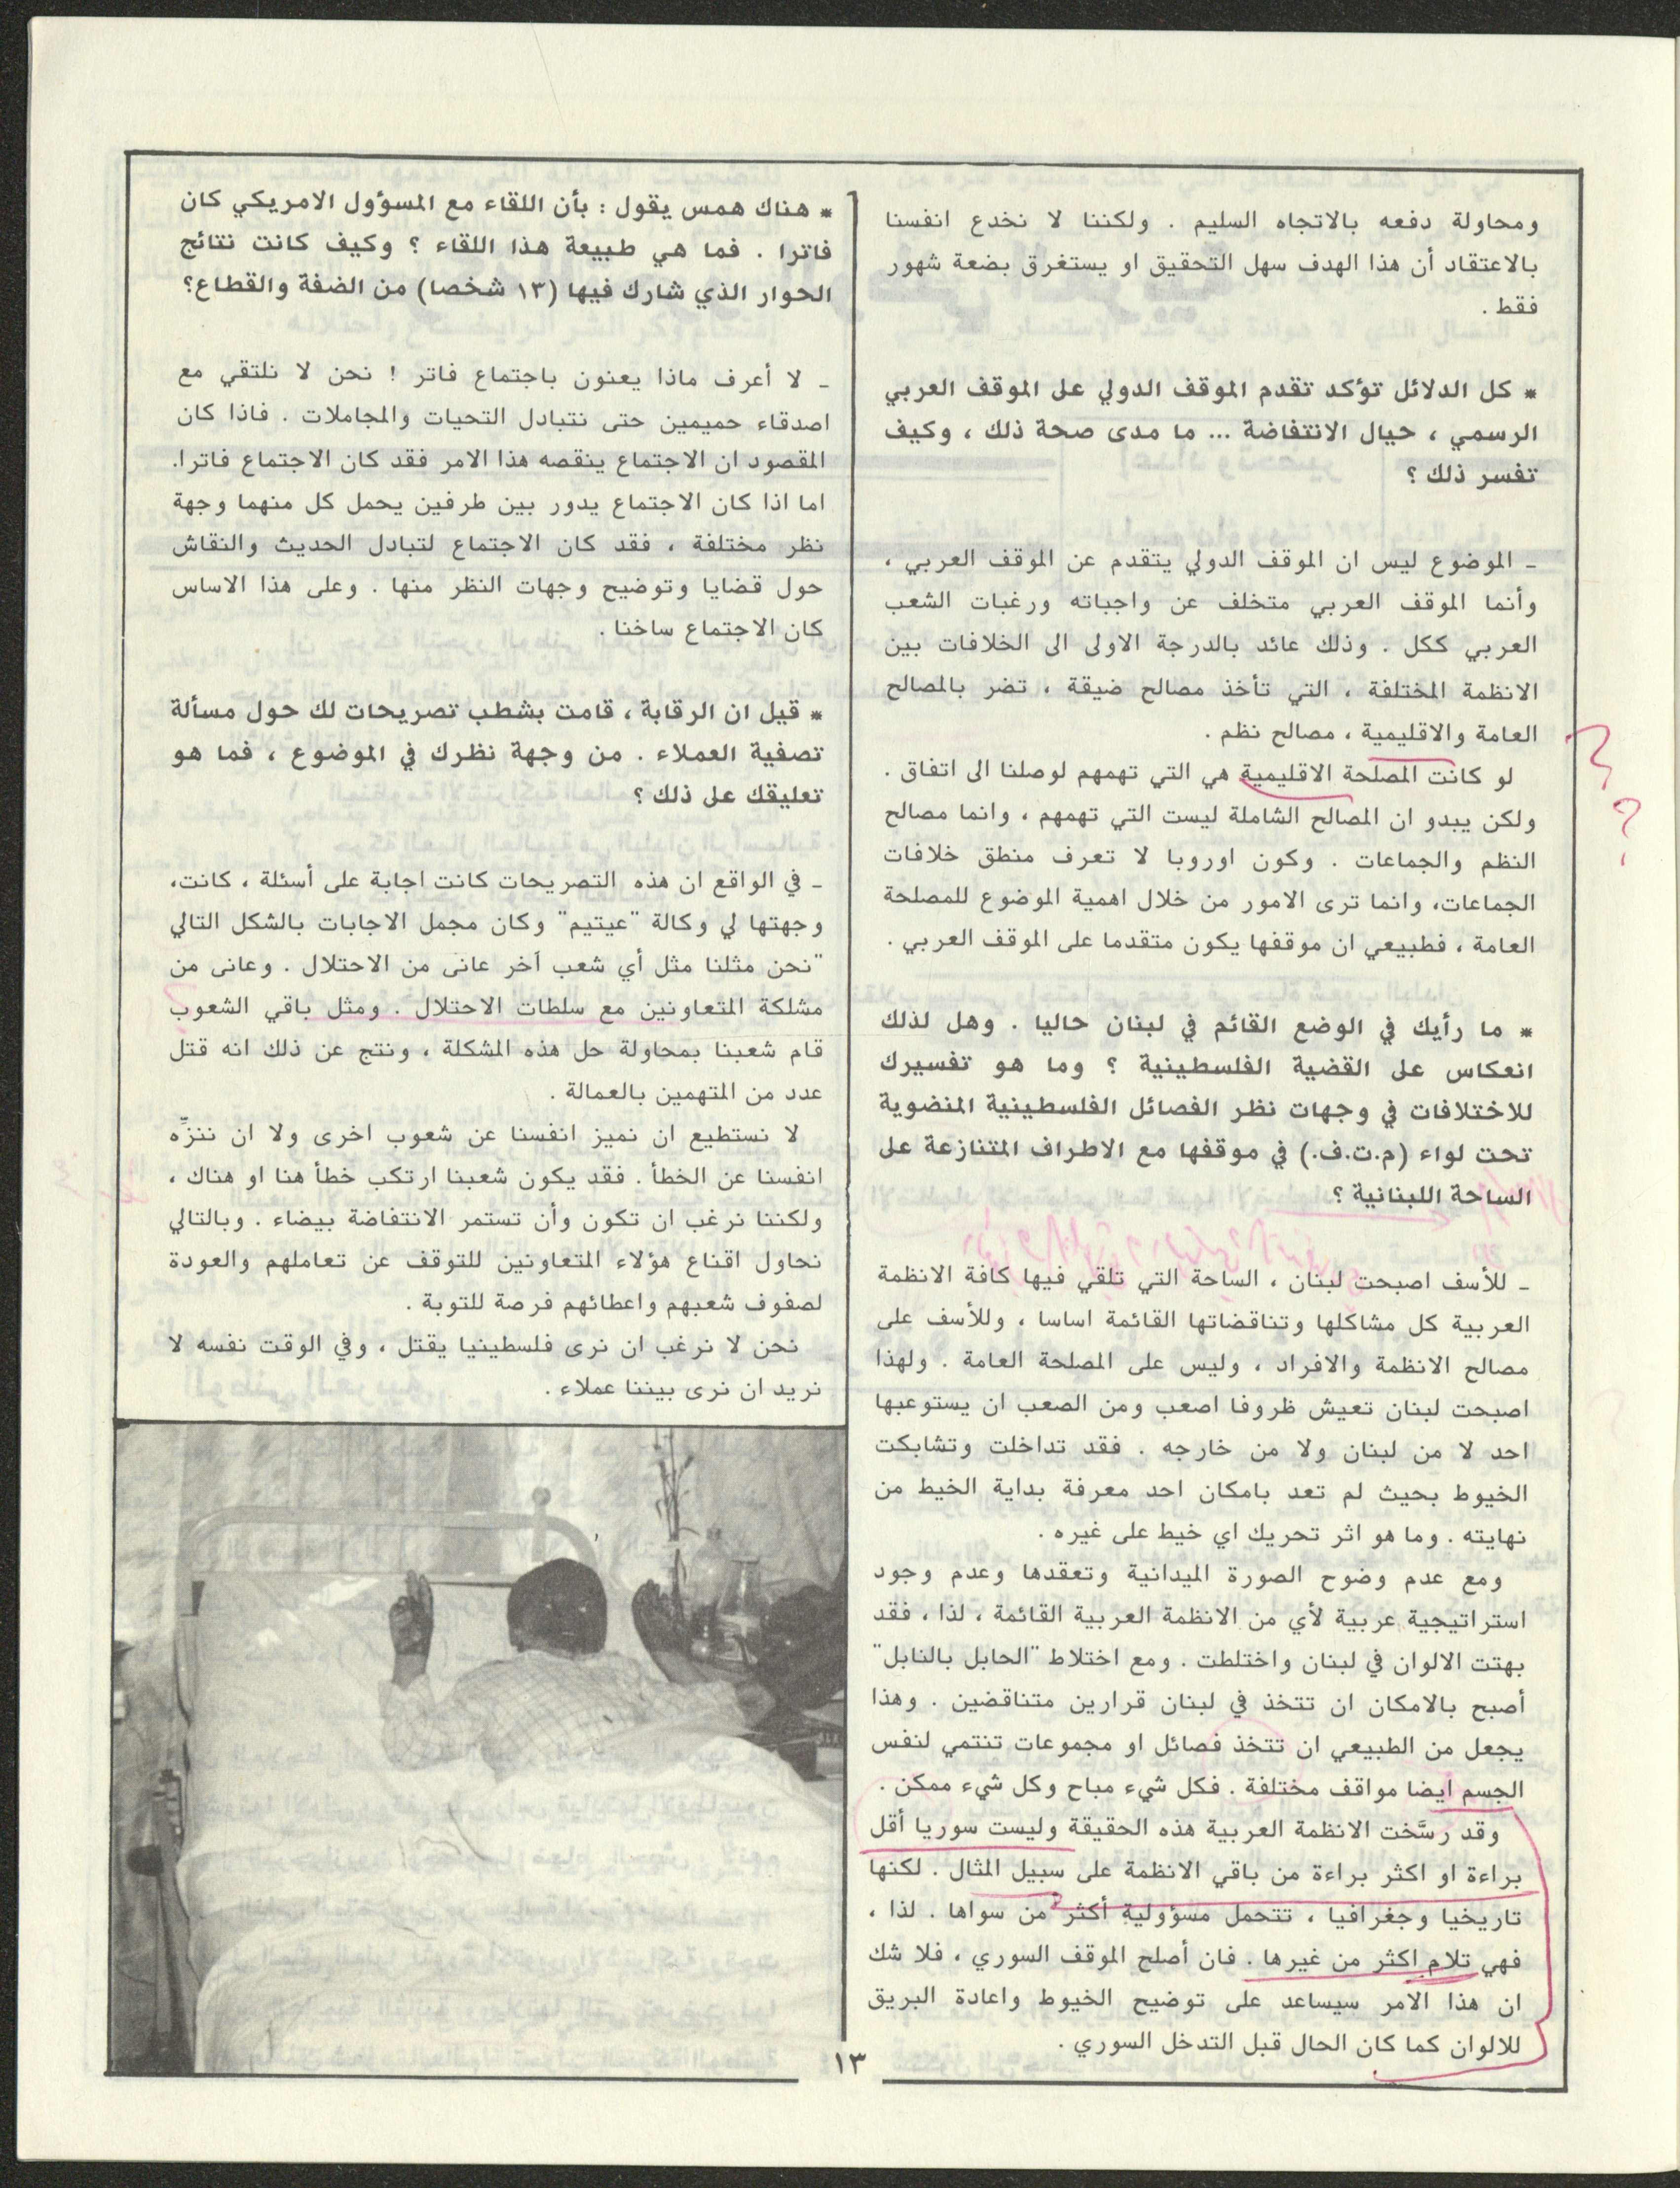 ومحاولة دفعه بالاتجاه السليم . ولكننا لا نخدع انفسنا
بالاعتقاد أن هذا الهدف سهل التحقيق او يستغرق بضعة شهور
فقط .
* كل الدلائل تؤكد تقدم الموقف الدولي على الموقف العربي
الرسمي ، حيال الانتفاضة ... ما مدى صحة ذلك ، وكيف
تفسر ذلك ؟
ـ الموضوع ليس ان الموقف الدولي يتقدم عن الموقف العربي ،
وأنما الموقف العربي متخلف عن واجباته ورغبات الشعب
العربي ككل . وذلك عائد بالدرجة الاولى الى الخلافات بين
الانظمة المختلفة ، التي تأخذ مصالح ضيقة ، تضر بالمصالح
العامة والاقليمية ، مصالح نظم .
لو كانت المصلحة الاقليمية هي التي تهمهم لوصلنا الى اتفاق .
ولكن يبدو ان المصالح الشاملة ليست التي تهمهم ، وانما مصالح
النظم والجماعات . وكون اوروبا لا تعرف منطق خلافات
الجماعات، وانما ترى الامور من خلال اهمية الموضوع للمصلحة
العامة ، فطبيعي ان موقفها يكون متقدما على الموقف العربي .
* ما رأيك في الوضع القائم في لبنان حاليا . وهل لذلك
انعكاس على القضية الفلسطينية ؟ وما هو تفسيرك
للاختلافات في وجهات نظر الفصائل الفلسطينية المنضوية
تحت لواء (م.ت.ف.) في موقفها مع الاطراف المتنازعة على
الساحة اللبنانية ؟
ـ للأسف اصبحت لبنان ، الساحة التي تلقي فيها كافة الانظمة
العربية كل مشاكلها وتناقضاتها القائمة اساسا ، وللأسف على
مصالح الانظمة والافراد ، وليس على المصلحة العامة . ولهذا
اصبحت لبنان تعيش ظروفا اصعب ومن الصعب ان يستوعبها
احد لا من لبنان ولا من خارجه . فقد تداخلت وتشابكت
الخيوط بحيث لم تعد بامكان احد معرفة بداية الخيط من
نهايته . وما هو اثر تحريك اي خيط على غيره .
ومع عدم وضوح الصورة الميدانية وتعقدها وعدم وجود
استراتيجية عربية لأي من الانظمة العربية القائمة ، لذا ، فقد
بهتت الالوان في لبنان واختلطت . ومع اختلاط "الحابل بالنابل"
أصبح بالامكان ان تتخذ في لبنان قرارين متناقضين . وهذا
يجعل من الطبيعي ان تتخذ فصائل او مجموعات تنتمي لنفس
الجسم ايضا مواقف مختلفة . فكل شيء مباح وكل شيء ممكن .
وقد رسَّخت الانظمة العربية هذه الحقيقة وليست سوريا أقل
براءة او اكثر براءة من باقي الانظمة على سبيل المثال . لكنها
تاريخيا وجغرافيا ، تتحمل مسؤولية أكثر من سواها . لذا ،
فهي تلام اكثر من غيرها . فان أصلح الموقف السوري ، فلا شك
ان هذا الامر سيساعد على توضيح الخيوط واعادة البريق
للالوان كما كان الحال قبل التدخل السوري .
* هناك همس يقول : بأن اللقاء مع المسؤول الامريكي كان
فاترا . فما هي طبيعة هذا اللقاء ؟ وكيف كانت نتائج
الحوار الذي شارك فيها (١٣ شخصا) من الضفة والقطاع؟
ـ لا أعرف ماذا يعنون باجتماع فاتر ! نحن لا نلتقي مع
اصدقاء حميمين حتى نتبادل التحيات والمجاملات . فاذا كان
المقصود ان الاجتماع ينقصه هذا الامر فقد كان الاجتماع فاترا.
اما اذا كان الاجتماع يدور بين طرفين يحمل كل منهما وجهة
نظر مختلفة ، فقد كان الاجتماع لتبادل الحديث والنقاش
حول قضايا وتوضيح وجهات النظر منها . وعلى هذا الاساس
كان الاجتماع ساخنا .
* قيل ان الرقابة ، قامت بشطب تصريحات لك حول مسألة
تصفية العملاء . من وجهة نظرك في الموضوع ، فما هو
تعليقك على ذلك ؟
ـ في الواقع ان هذه التصريحات كانت اجابة على أسئلة ، كانت،
وجهتها لي وكالة "عيتيم" وكان مجمل الاجابات بالشكل التالي
"نحن مثلنا مثل أي شعب آخر عانى من الاحتلال . وعانى من
مشلكة المتعاونين مع سلطات الاحتلال . ومثل باقي الشعوب
قام شعبنا بمحاولة حل هذه المشكلة ، ونتج عن ذلك انه قتل
عدد من المتهمين بالعمالة .
لا نستطيع ان نميز انفسنا عن شعوب اخرى ولا ان ننزِّه
انفسنا عن الخطأ . فقد يكون شعبنا ارتكب خطأ هنا او هناك ،
ولكننا نرغب ان تكون وأن تستمر الانتفاضة بيضاء . وبالتالي
نحاول اقناع هؤلاء المتعاونين للتوقف عن تعاملهم والعودة
لصفوف شعبهم واعطائهم فرصة للتوبة .
نحن لا نرغب ان نرى فلسطينيا يقتل ، وفي الوقت نفسه لا
نريد ان نرى بيننا عملاء .
١٣